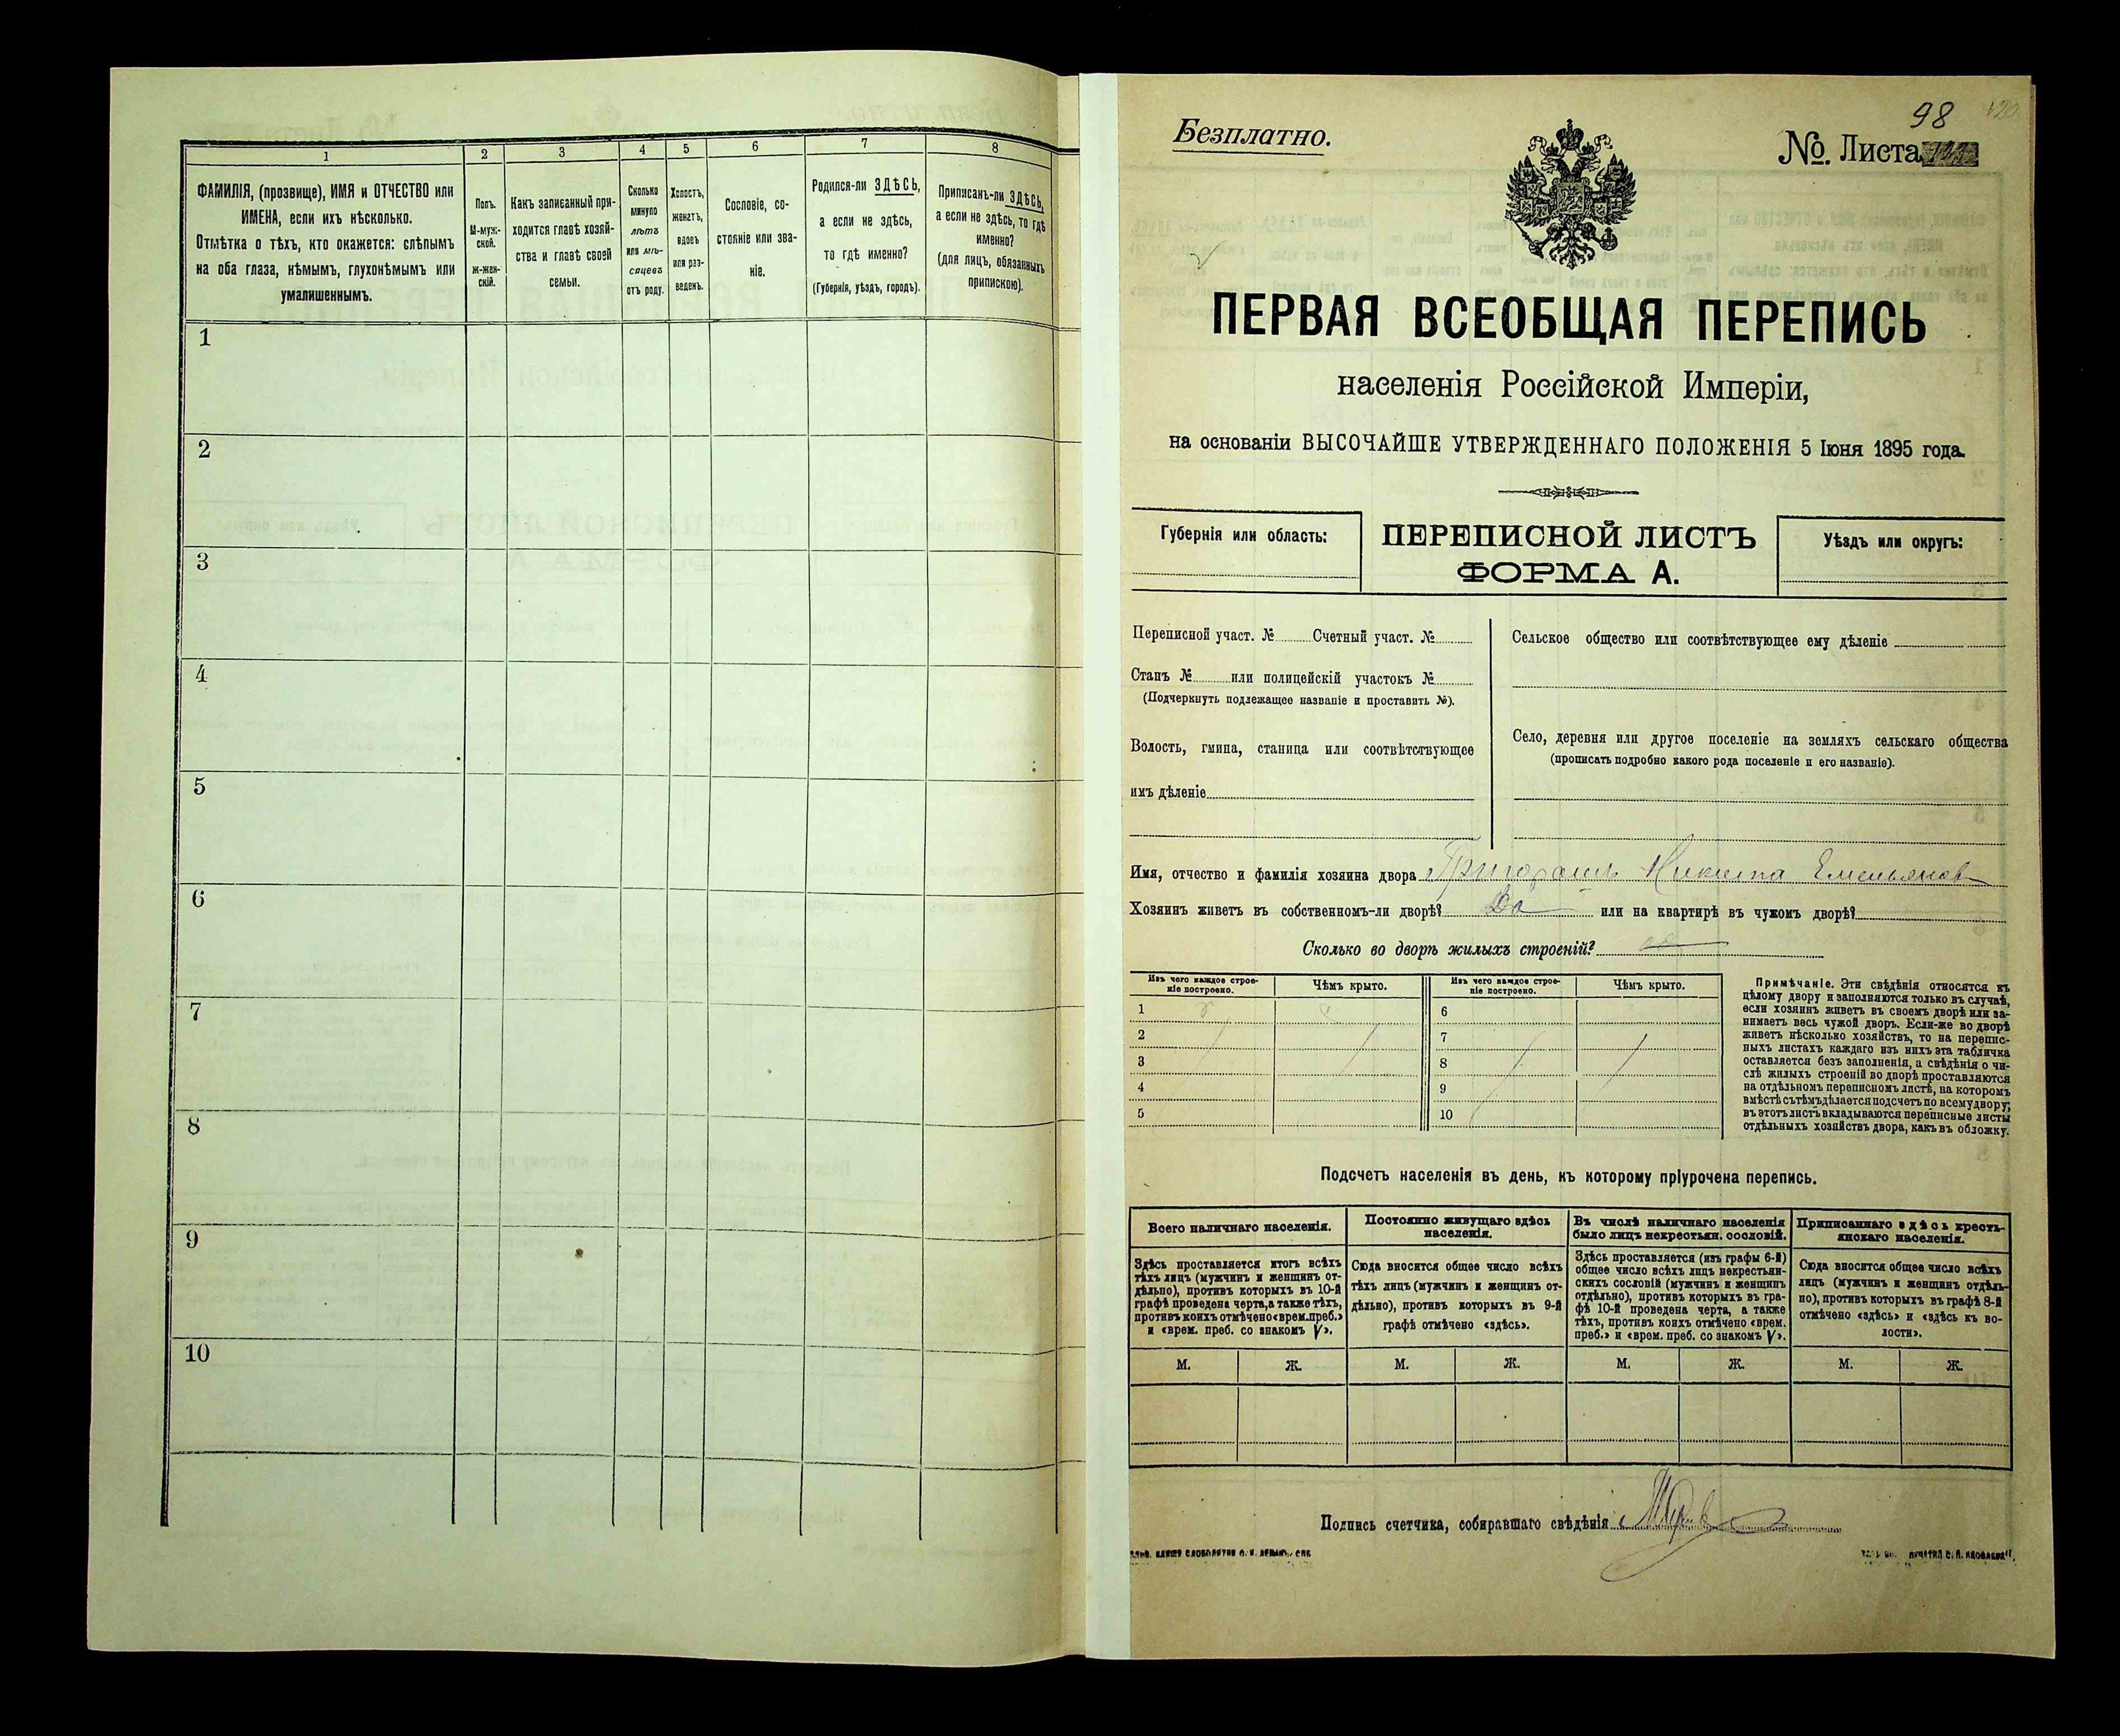 1 2 3 4 5 6 7 8
ФАМИЛІЯ, (прозвище), ИМЯ и ОТЧЕСТВО или
ИМЕНА, если ихъ нѣсколько.
Отмѣтка о тѣхъ, кто окажется: слѣпымъ
на оба глаза, нѣмымъ, глухонѣмымъ или
умалишеннымъ.
Полъ.
М-муж-
ской.
Ж-жен-
скій.
Какъ записанный при-
ходится главѣ хозяй-
ства и главѣ своей
семьи.
Сколько
минуло
лѣтъ
или мѣ-
сяцевъ
отъ роду.
Холостъ,
женатъ,
вдовъ
или раз-
веденъ.
Сословіе, со-
стояніе или зва-
ніе.
Родился-ли ЗДѢСЬ,
а если не здѣсь,
то гдѣ именно?
(Губернія, уѣздъ, городъ).
Приписанъ-ли ЗДѢСЬ,
а если не здѣсь, то гдѣ
именно?
(для лицъ, обязанныхъ
припискою).
1
2
3
4
5
6
7
8
9
10
98
Безплатно.
№ Листа
ПЕРВАЯ ВСЕОБЩАЯ ПЕРЕПИСЬ
населенія Россійской Имперіи,
на основаніи ВЫСОЧАЙШЕ УТВЕРЖДЕННАГО ПОЛОЖЕНІЯ 5 Іюня 1895 года.
Губернія или область:
ПЕРЕПИСНОЙ ЛИСТЪ
ФОРМА А.
Уѣздъ или округъ:
Переписной участ. № Счетный участ. №
Станъ № или полицейскій участокъ №
(Подчеркнуть подлежащее названіе и проставить №).
Волость, гмина, станица или соотвѣтствующее
имъ дѣленіе
Сельское общество или соотвѣтствующее ему дѣленіе
Село, деревня или другое поселеніе на земляхъ сельскаго общества
(прописать подробно какого рода поселеніе и его названіе).
Имя, отчество и фамилія хозяина двора Григорашъ Никита Емельяновъ
Хозяинъ живетъ въ собственномъ-ли дворѣ? Да или на квартирѣ въ чужомъ дворѣ?
Сколько во дворѣ жилыхъ строеній?
Изъ чего каждое строе-
ніе построено.
Чѣмъ крыто.
Изъ чего каждое строе-
ніе построено.
Чѣмъ крыто.
1 6
2 7
3 8
4 9
5 10
Примѣчаніе. Эти свѣдѣнія относятся къ
цѣлому двору и заполняются только въ случаѣ,
если хозяинъ живетъ въ своемъ дворѣ или за-
нимаетъ весь чужой дворъ. Если-же во дворѣ
живетъ нѣсколько хозяйствъ, то на перепис-
ныхъ листахъ каждаго изъ нихъ эта табличка
оставляется безъ заполненія, а свѣдѣнія о чи-
слѣ жилыхъ строеній во дворѣ проставляются
на отдѣльномъ переписномъ листѣ, на которомъ
вмѣстѣ съ тѣмъ дѣлается подсчетъ по всему двору;
въ этотъ листъ вкладываются переписные листы
отдѣльныхъ хозяйствъ двора, какъ въ обложку.
Подсчетъ населенія въ день, къ которому пріурочена перепись.
Всего наличнаго населенія.
Здѣсь проставляется итогъ всѣхъ
тѣхъ лицъ (мужчинъ и женщинъ от-
дѣльно), противъ которыхъ въ 10-й
графѣ проведена черта, а также тѣхъ,
противъ коихъ отмѣчено «врем. преб.»
и «врем. преб. со знакомъ V».
Постоянно живущаго здѣсь
населенія.
Сюда вносится общее число всѣхъ
тѣхъ лицъ (мужчинъ и женщинъ от-
дѣльно), противъ которыхъ въ 9-й
графѣ отмѣчено «здѣсь».
Въ числѣ наличнаго населенія
было лицъ некрестьян. сословій.
Здѣсь проставляется (изъ графы 6-й)
общее число всѣхъ лицъ некрестьян-
скихъ сословій (мужчинъ и женщинъ
отдѣльно), противъ которыхъ въ гра-
фѣ 10-й проведена черта, а также
тѣхъ, противъ коихъ отмѣчено «врем.
преб.» и «врем. преб. со знакомъ V».
Приписаннаго здѣсь кресть-
янскаго населенія.
Сюда вносится общее число всѣхъ
лицъ (мужчинъ и женщинъ отдѣль-
но), противъ которыхъ въ графѣ 8-й
отмѣчено «здѣсь» и «здѣсь къ во-
лости».
М. Ж. М. Ж. М. Ж. М. Ж.
Подпись счетчика, собиравшаго свѣдѣнія